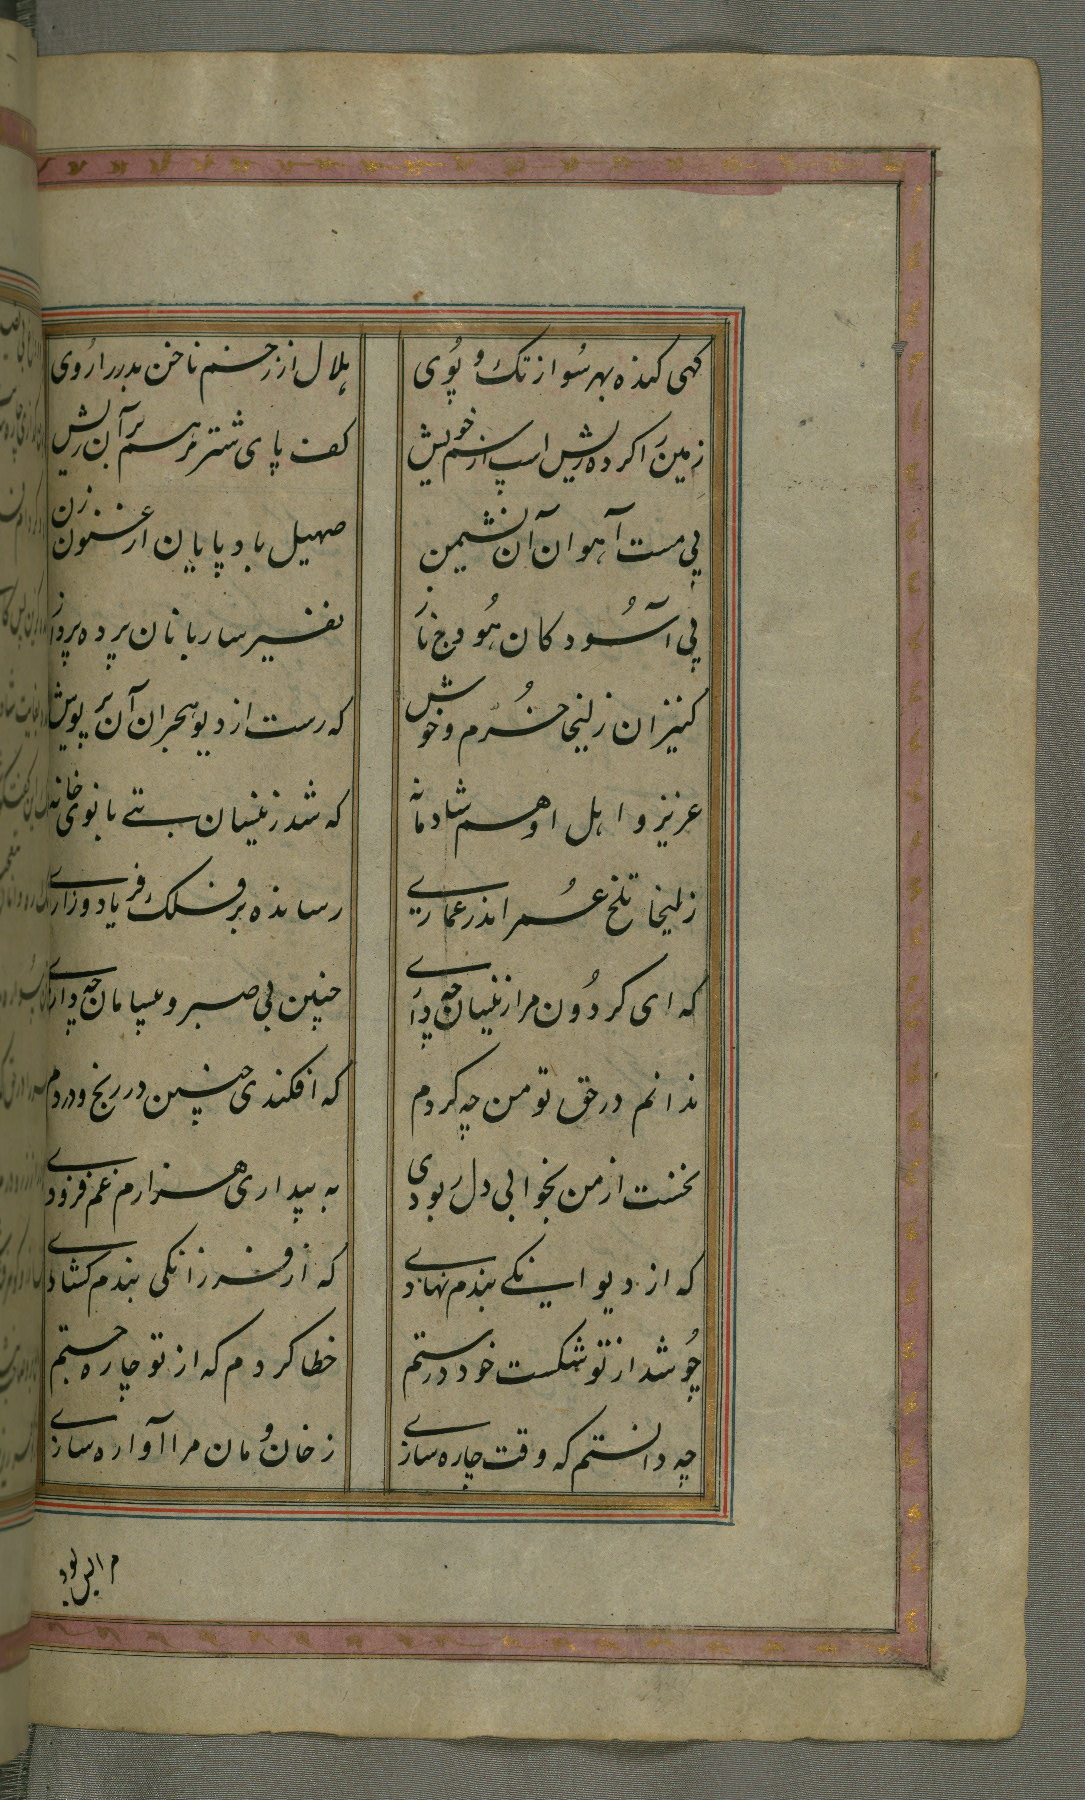 کهی کنده بهر سو از تک و پوی هلال از زخم ناخن بدر را روی
زمین را کرده ریش اسپ از سم خویش کف پای شتر مرهم بر آن ریش
پی مست آهوان آن نشیمن صهیل باد پایان ارغنون زن
پی آسودکان هودج ناز نفیر ساربانان پرده پرداز
کنیزان زلیخا خرم و خوش که رست از دیو هجران آن پریوش
عزیز و اهل او هم شادمانه که شد زینسان بتے بانوی خانه
زلیخا تلخ عمر اندر عماری رسانده بر فلک فریاد و زاری
که ای کردون مرا زینسان چه داری چنین بی صبر و بیسامان چه داری
ندانم در حق تو من چه کردم که افکندی چنین در رنج و دردم
نخست از من بخوابی دل ربودی به بیداری هزارم غم فزودی
که از دیوانکے بندم نهادی که از فرزانکی بندم کشادی
چو شد از تو شکست خود درستم خطا کردم که از تو چاره جستم
چه دانستم که وقت چاره سازی ز خان و مان مرا آواره سازی